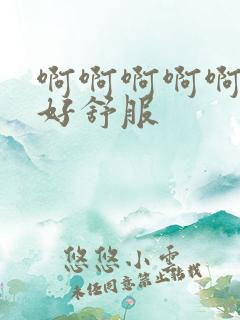 啊啊啊啊啊
好舒服
悠悠小云
未经同意禁止转载